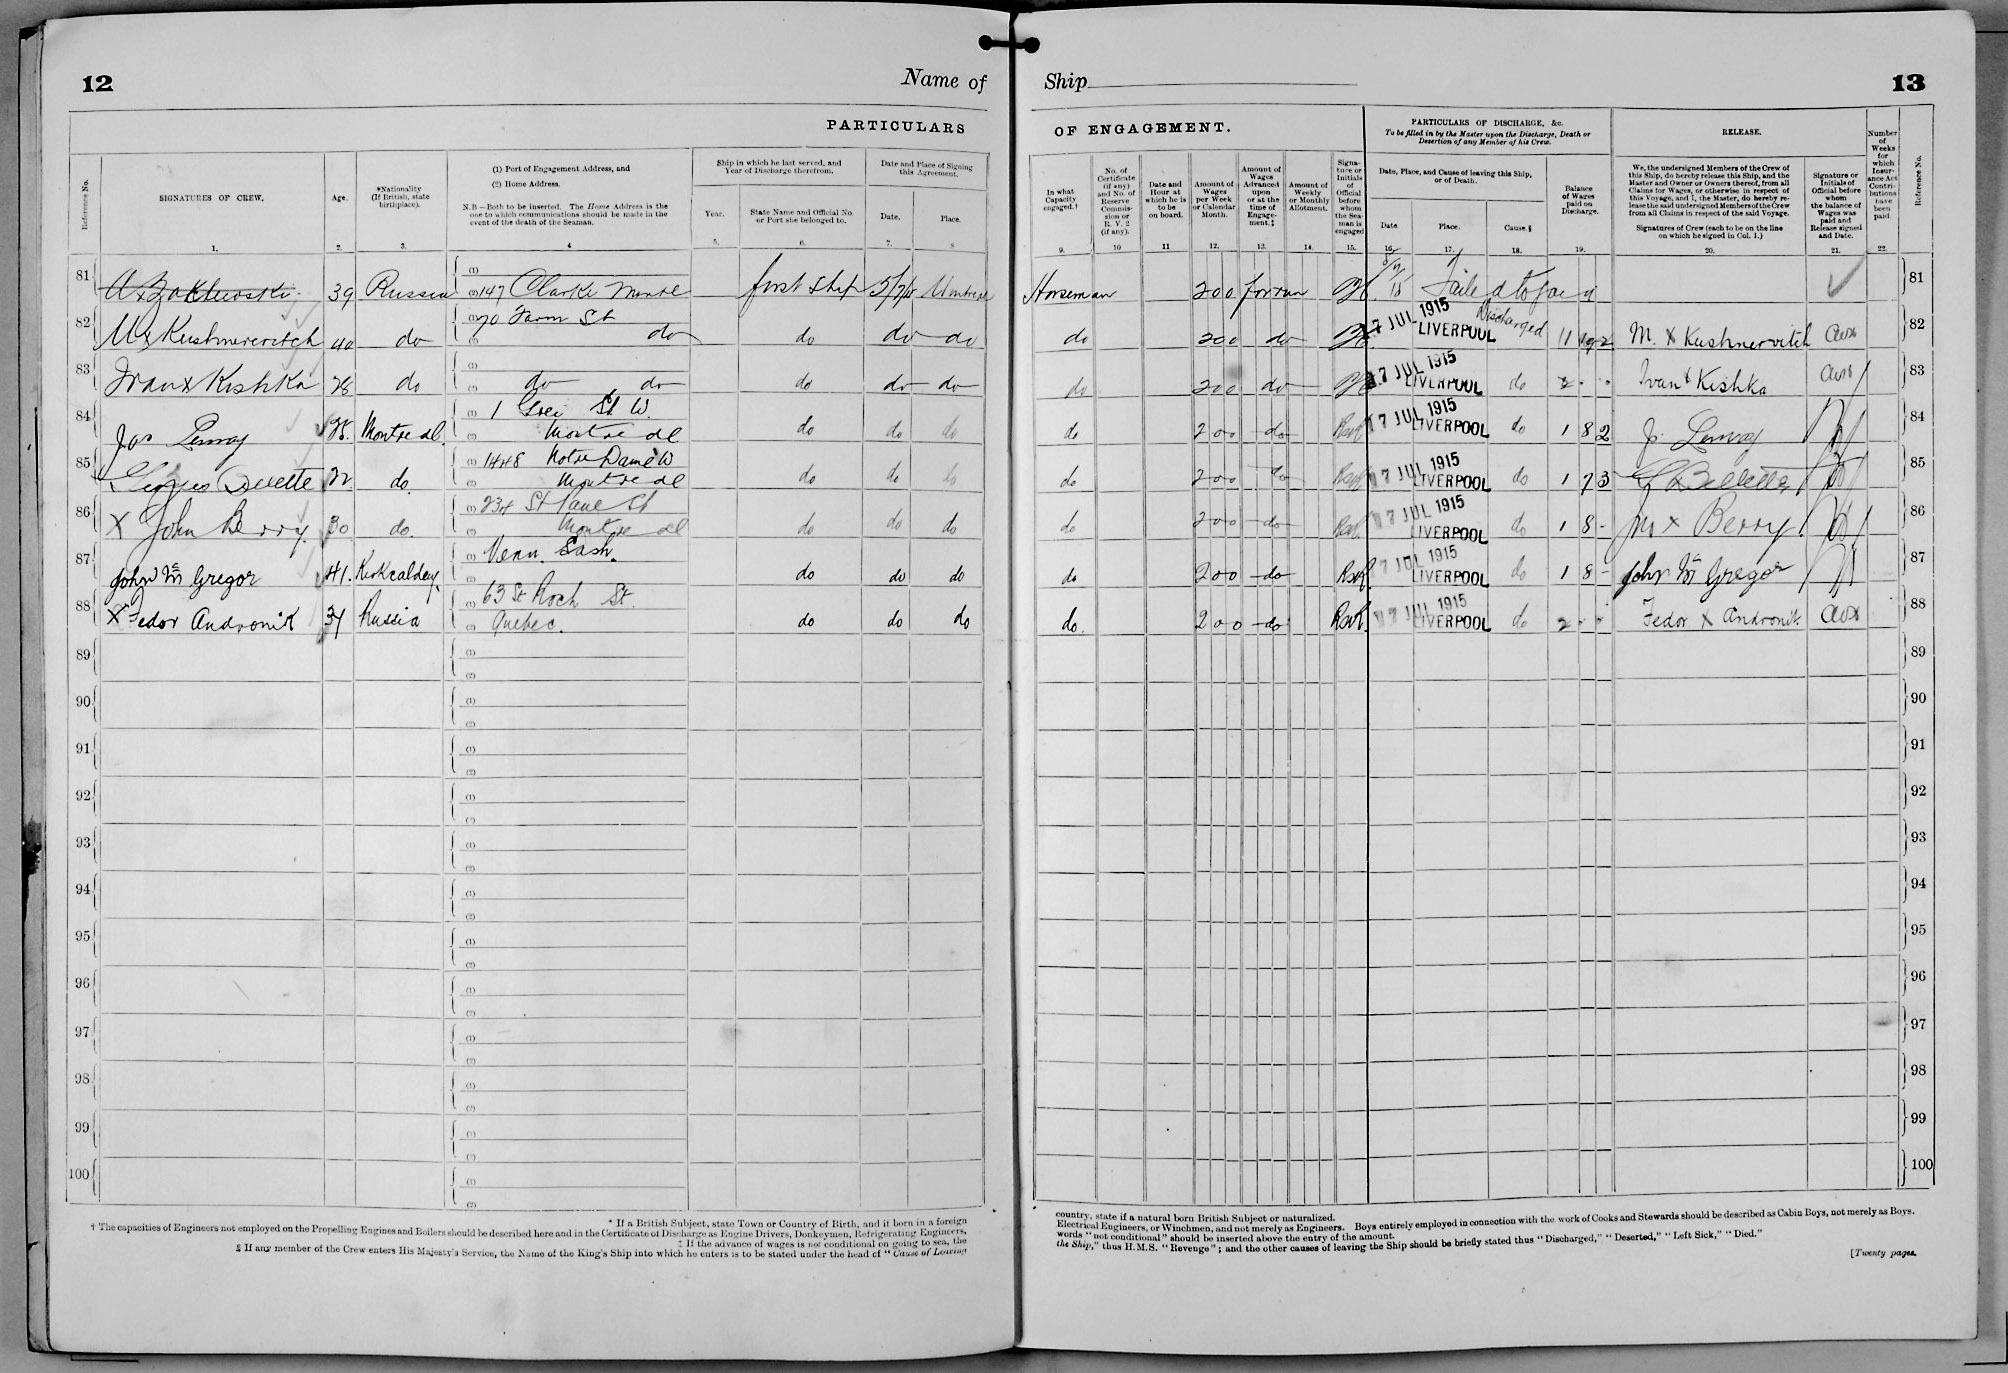 12
Name of
PARTICULARS
Reference No.
SIGNATURES OF CREW.
Age.
*Nationality
(If British, state
birthplace).
(1) Port of Engagement Address, and
(2) Home Address.
N.B—Both to be inserted. The Home Address is the
one to which communications should be made in the
event of the death of the Seaman.
Ship in which he last served, and
Year of Discharge therefrom.
Year.
State Name and Official No.
or Port she belonged to.
Date and Place of Signing
this Agreement.
Date.
Place.
1. 2. 3. 4 5. 6. 7. 8
81 39 Russia (1)
(2) 147 Clarke first ship 5/7/15 Montreal
82 M x Kushnerevitch 40 do (1) 70 Farm St
(2) do do do do
83 Ivan x Kishka 28 do (1)
(2) do do do do do
84 Jas Lemay 28. Montreal (1) 1 St W.
(2) Montreal do do do
85 22 do. (1) 1448 Notre Dame W
(2) Montreal do do do
86 X John Berry. 30 do. (1) 234 St Paul St
(2) Montreal do do do
87 John McGregor 41. Kirkcaldey (1)
(2) do do do
88 X Fedor Andronik 34 Russia (1) 63 St Roch St.
(2) Quebec. do do do
89 (1)
(2)
90 (1)
(2)
91 (1)
(2)
92 (1)
(2)
93 (1)
(2)
94 (1)
(2)
95 (1)
(2)
96 (1)
(2)
97 (1)
(2)
98 (1)
(2)
99 (1)
(2)
100 (1)
(2)
* If a British Subject, state Town or Country of Birth, and if born in a foreign
† The capacities of Engineers not employed on the Propelling Engines and Boilers should be described here and in the Certificate of Discharge as Engine Drivers, Donkeymen, Refrigerating Engineers,
‡ If the advance of wages is not conditional on going to sea, the
§ If any member of the Crew enters His Majesty's Service, the Name of the King's Ship into which he enters is to be stated under the head of "Cause of Leaving
Ship
13
OF ENGAGEMENT.
PARTICULARS OF DISCHARGE, &c.
To be filled in by the Master upon the Discharge, Death or
Desertion of any Member of his Crew.
RELEASE.
In what
Capacity
engaged.†
No. of
Certificate
(if any)
and No. of
Reserve
Commis-
sion or
R. V. 2
(if any).
Date and
Hour at
which he is
to be
on board.
Amount of
Wages
per Week
or Calendar
Month.
Amount of
Wages
Advanced
upon
or at the
time of
Engage-
ment.‡
Amount of
Weekly
or Monthly
Allotment.
Signa-
ture or
Initials
of
Official
before
whom
the Sea-
man is
engaged
Date, Place, and Cause of leaving this Ship,
or of Death.
Date
Place.
Cause.§
Balance
of Wages
paid on
Discharge.
We, the undersigned Members of the Crew of
this Ship, do hereby release this Ship, and the
Master and Owner or Owners thereof, from all
Claims for Wages, or otherwise in respect of
this Voyage, and I, the Master, do hereby re-
lease the said undersigned Members of the Crew
from all Claims in respect of the said Voyage.
Signatures of Crew (each to be on the line
on which he signed in Col. 1.)
Signature or
Initials of
Official before
whom
the balance of
Wages was
paid and
Release signed
and Date.
Number
of
Weeks
for
which
Insur-
ance Act
Contri-
butions
have
been
paid
Reference No.
9. 10 11 12. 13. 14. 15. 16. 17. 18. 19. 20. 21. 22.
Horseman 200 for run Failed to join 81
do 200 do 7 JUL 1915 LIVERPOOL Discharged M. x Kushnervitch 82
do 200 do 17 JUL 1915 LIVERPOOL do 2 - - Ivan x Kishka 83
do 200 do 17 JUL 1915 LIVERPOOL do 1 8 2 J. Lemay 84
do 200 do 17 JUL 1915 LIVERPOOL do 1 7 3 85
do 200 do 17 JUL 1915 LIVERPOOL do 1 8 - Jn x Berry. 86
do 200 do 17 JUL 1915 LIVERPOOL do 1 8 - John McGregor 87
do. 200 do 17 JUL 1915 LIVERPOOL do 2 - - Fedor x Andronik 88
89
90
91
92
93
94
95
96
97
98
99
100
country, state if a natural born British Subject or naturalized.
Electrical Engineers, or Winchmen, and not merely as Engineers. Boys entirely employed in connection with the work of Cooks and Stewards should be described as Cabin Boys, not merely as Boys.
words "not conditional" should be inserted above the entry of the amount.
the Ship," thus H.M.S. "Revenge"; and the other causes of leaving the Ship should be briefly stated thus "Discharged," "Deserted," "Left Sick," "Died."
[Twenty pages.